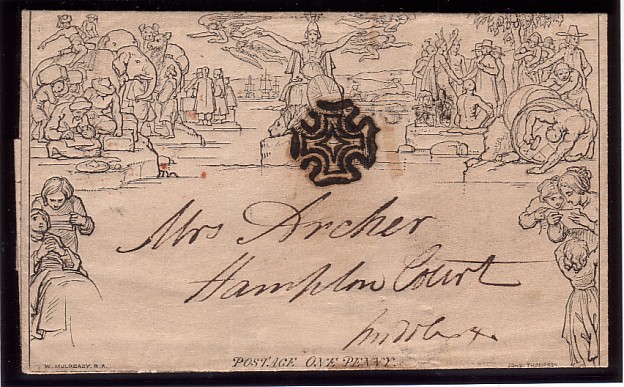 Mrs Archer
Hampton Court
Middx
POSTAGE ONE PENNY.
W. MULREADY. R.A.
JOHN THOMPSON